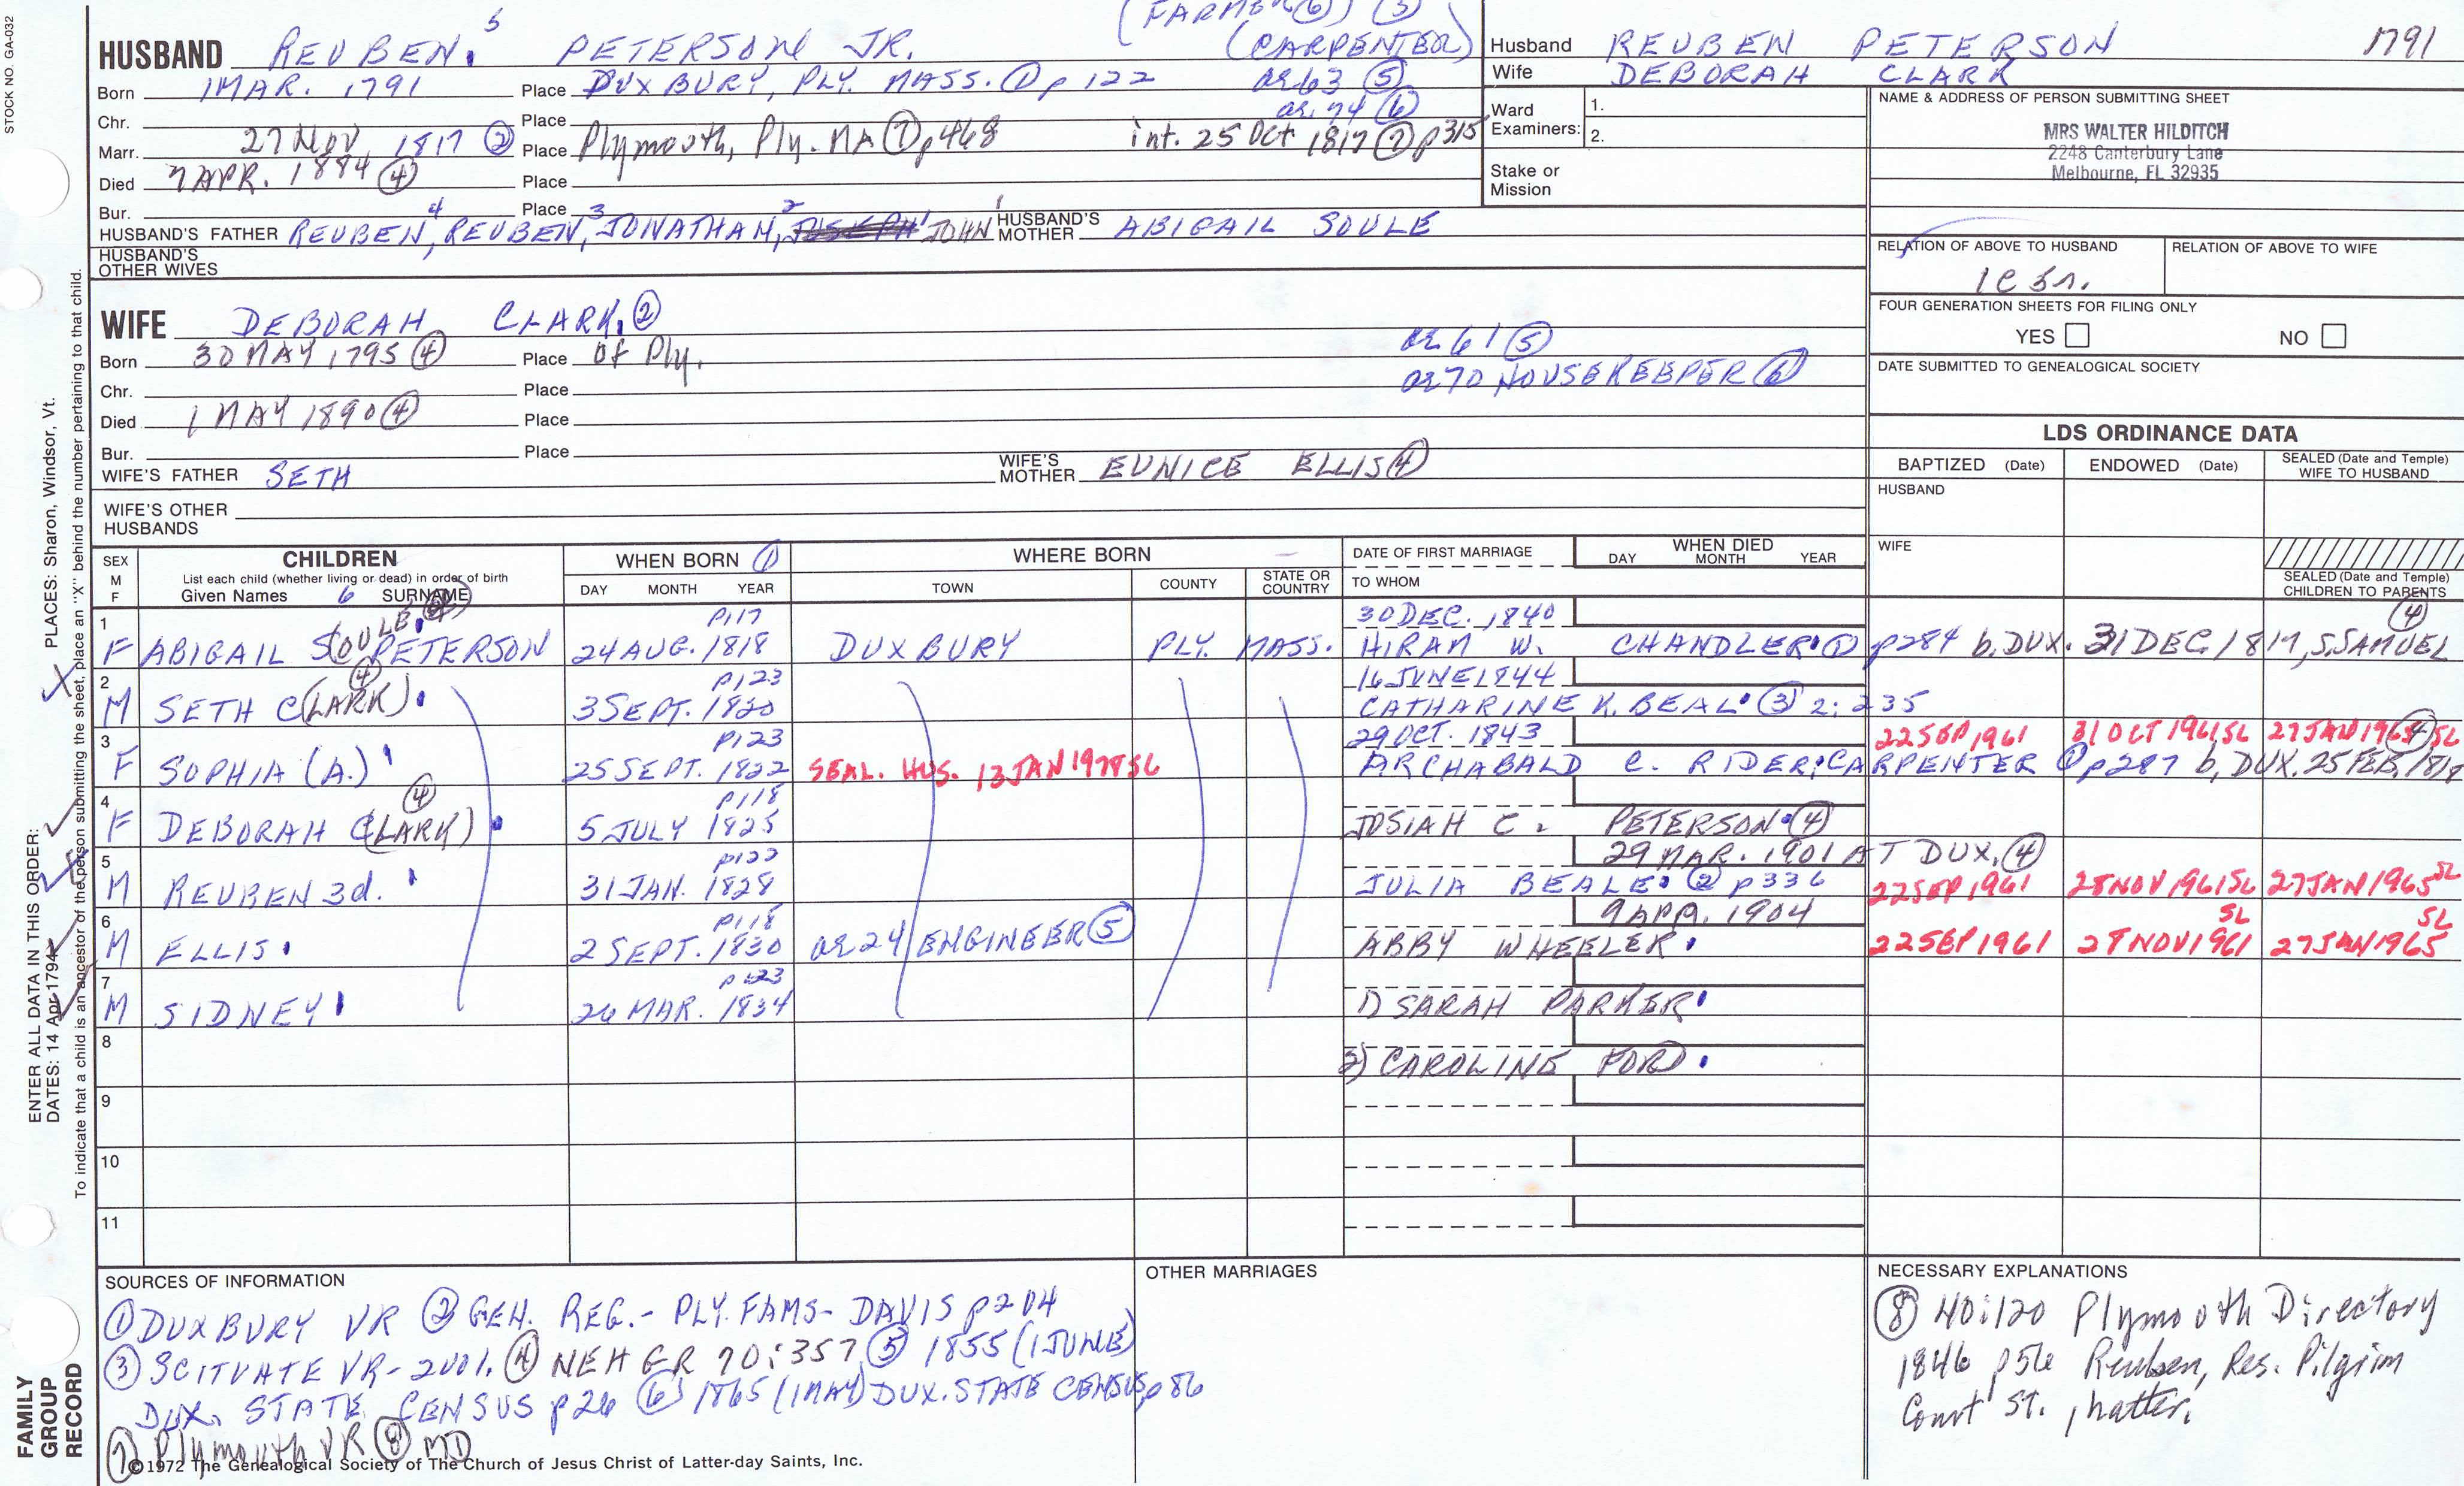 STOCK NO. GA-032
(FARMER ⑥) ③
HUSBAND REUBEN. 5 PETERSON JR. (CARPENTER)
Born 1 MAR. 1791 Place DUXBURY, PLY. MASS. ① p 122 ae 63 ⑤
Chr. Place ae. 74 ⑥
Marr. 27 Nov 1817 ② Place Plymouth, Ply. MA ⑦ p468 int. 25 Oct 1817 ⑦ p315
Died 7 APR. 1884 ④ Place
Bur. Place
HUSBAND'S FATHER REUBEN, 4 REUBEN, 3 JONATHAN, 2 JOHN 1 HUSBAND'S MOTHER ABIGAIL SOULE
HUSBAND'S OTHER WIVES
Husband REUBEN PETERSON 1791
Wife DEBORAH CLARK
Ward Examiners: 1.
2.
Stake or Mission
NAME & ADDRESS OF PERSON SUBMITTING SHEET
MRS WALTER HILDITCH
2248 Canterbury Lane
Melbourne, FL 32935
RELATION OF ABOVE TO HUSBAND RELATION OF ABOVE TO WIFE
FOUR GENERATION SHEETS FOR FILING ONLY
YES NO
DATE SUBMITTED TO GENEALOGICAL SOCIETY
WIFE DEBORAH CLARK. ②
Born 30 MAY 1795 ④ Place of Ply. ae 61 ⑤
Chr. Place ae 70 HOUSEKEEPER ⑥
Died 1 MAY 1890 ④ Place
Bur. Place
WIFE'S FATHER SETH WIFE'S MOTHER EUNICE ELLIS ④
WIFE'S OTHER HUSBANDS
LDS ORDINANCE DATA
BAPTIZED (Date) ENDOWED (Date) SEALED (Date and Temple) WIFE TO HUSBAND
HUSBAND
WIFE
SEALED (Date and Temple) CHILDREN TO PARENTS
SEX M F CHILDREN List each child (whether living or dead) in order of birth Given Names 6 SURNAME
WHEN BORN ① DAY MONTH YEAR
WHERE BORN TOWN COUNTY STATE OR COUNTRY
DATE OF FIRST MARRIAGE TO WHOM
WHEN DIED DAY MONTH YEAR
1 p117 30 DEC. 1840 ④
F ABIGAIL S(OULE) PETERSON 24 AUG. 1818 DUXBURY PLY. MASS. HIRAM W. CHANDLER. ① p284 b. DUX. 31 DEC. 1817, S. SAMUEL
2 ④ p123 16 JUNE 1844
M SETH C(LARK). 3 SEPT. 1820 CATHARINE K. BEAL ③ 2:235
3 p123 29 OCT. 1843 22 SEP 1961 31 OCT 1961 SL 27 JAN 1965 SL ④
F SOPHIA (A.) 25 SEPT. 1822 SEAL. HUS. 13 JAN 1978 SL ARCHABALD C. RIDER; CARPENTER ① p287 b. DUX. 25 FEB. 1818
4 ④ p118
F DEBORAH C(LARK). 5 JULY 1825 JOSIAH C. PETERSON. ④
5 p122 29 MAR. 1901 AT DUX. ④
M REUBEN 3d. 31 JAN. 1828 JULIA BEALE. ② p336 22 SEP 1961 28 NOV 1961 SL 27 JAN 1965 SL
6 p118 9 APR. 1904 SL SL
M ELLIS. 2 SEPT. 1830 ae 24 ENGINEER ⑤ ABBY WHEELER. 22 SEP 1961 28 NOV 1961 27 JAN 1965
7 p123
M SIDNEY. 26 MAR. 1834 1) SARAH PARKER.
8 2) CAROLINE FORD.
9
10
11
SOURCES OF INFORMATION
① DUXBURY VR ② GEN. REG. - PLY. FAMS - DAVIS p204
③ SCITUATE VR - 2 vol. ④ NEHGR 70:357 ⑤ 1855 (1 JUNE)
DUX. STATE CENSUS p26 ⑥ 1865 (1 MAY) DUX. STATE CENSUS p86
⑦ Plymouth VR ⑧ MD
©1972 The Genealogical Society of The Church of Jesus Christ of Latter-day Saints, Inc.
OTHER MARRIAGES
NECESSARY EXPLANATIONS
⑧ 40:120 Plymouth Directory
1846 p56 Reuben, Res. Pilgrim
Court St., hatter.
ENTER ALL DATA IN THIS ORDER:
DATES: 14 Apr 1794 PLACES: Sharon, Windsor, Vt.
To indicate that a child is an ancestor of the person submitting the sheet, place an "X" behind the number pertaining to that child.
FAMILY GROUP RECORD